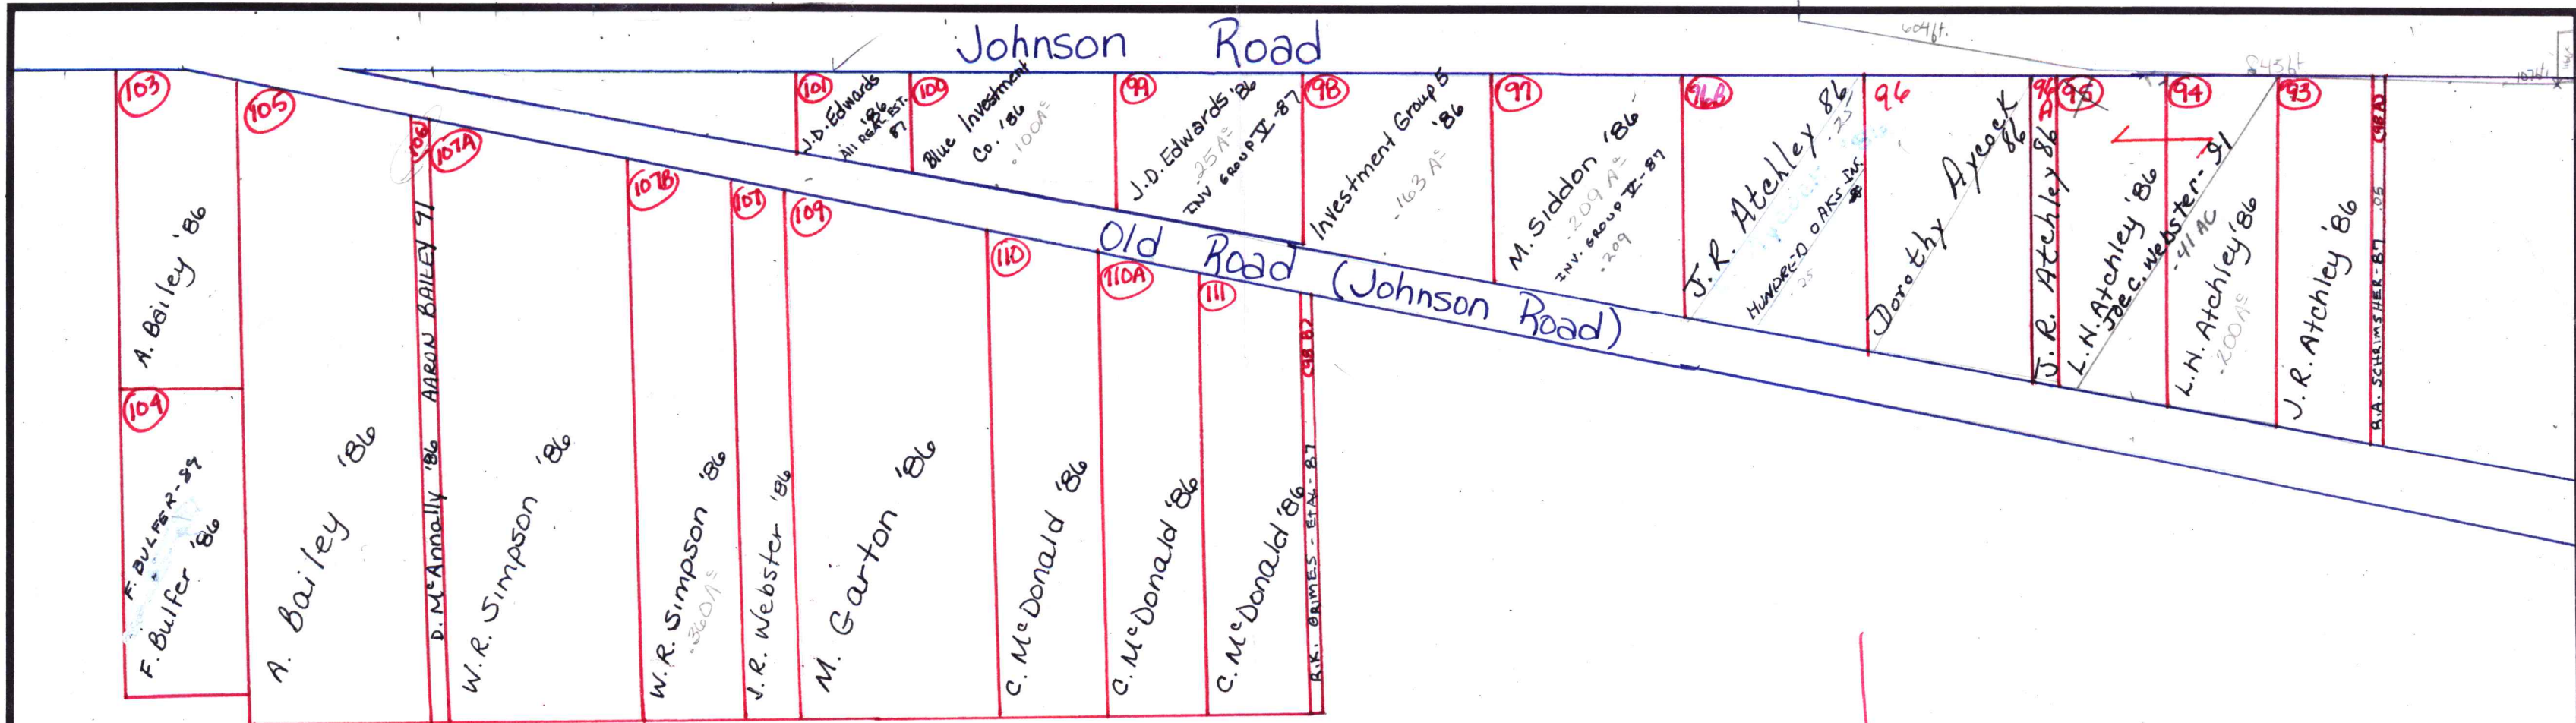 Johnson Road
604ft.
845ft
103
A. Bailey '86
104
F. BULFER-89
F. Bulfer '86
105
A. Bailey '86
106
AARON BAILEY 91
D. McAnnally '86
107A
W.R. Simpson '86
107B
W.R. Simpson '86
.360A±
107
J.R. Webster '86
109
M. Garton '86
110
C. McDonald '86
110A
C. McDonald '86
111
C. McDonald '86
98 B2
R.K. GRIMES - ETAL - 87
101
J.D. Edwards
'86
All REAL EST.
87
100
Blue Investment
Co. '86
.100A±
99
J.D. Edwards '86
.25A±
INV GROUP V-87
98
Investment Group 5
'86
.163 A±
97
M. Siddon '86
.209 A±
INV. GROUP V-87
.209
96B
J.R. Atchley 86
.25
HUNDRED OAKS INV.
.25
96
Dorothy Aycock
86
96
J.R. Atchley 86
95
L.H. Atchley '86
Joe C. Webster-91
.41 AC
94
L.H. Atchley '86
.200A±
93
J.R. Atchley '86
R.A. SCHRIMSHER-87 .05
Old Road (Johnson Road)